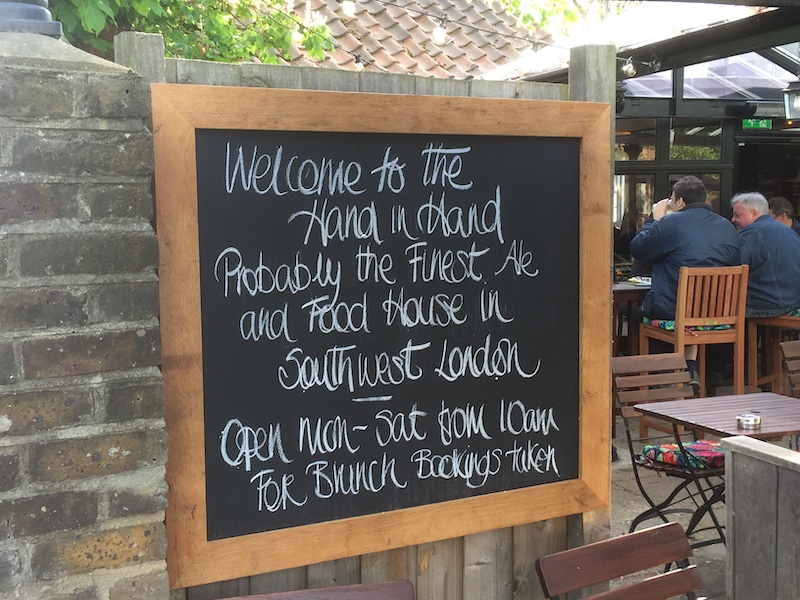 Welcome to the
Hand in Hand
Probably the Finest Ale
and Food House in
Southwest London
Open Mon-Sat from 10am
For Brunch Bookings taken